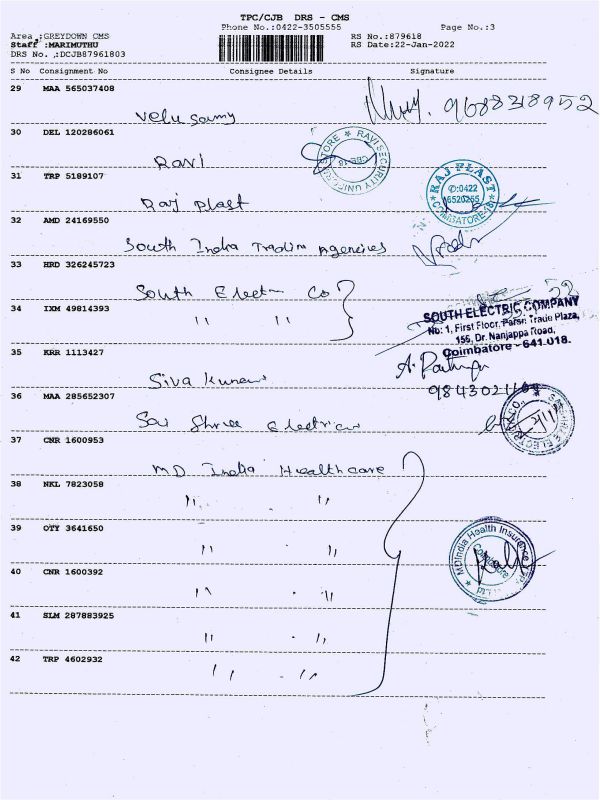 TPC/CJB DRS - CMS
Phone No.:0422-3505555 Page No.:3
Area ;GREYDOWN CMS RS No.:879618
Staff :MARIMUTHU RS Date:22-Jan-2022
DRS No. ;DCJB87961803
S No Consignment No Consignee Details Signature
29 MAA 565037408
Velu Samy 9688318952
30 DEL 120286061
Ravi
RAVI SECURITY
31 TRP 5189107
Raj Plast
RAJ PLAST
✆:0422
6520255
COIMBATORE-18
32 AMD 24169550
South India Trading Agencies
33 HRD 326245723
South Electric Co
34 IXM 49814393
" "
SOUTH ELECTRIC COMPANY
No: 1, First Floor, Parsn Trade Plaza,
156, Dr. Nanjappa Road,
Coimbatore - 641 018.
35 KRR 1113427
Siva Kumar
36 MAA 285652307
Sai Shree Electrical
37 CNR 1600953
MD India Healthcare
38 NKL 7823058
" "
39 OTY 3641650
" "
MDIndia Health Insurance TPA
Coimbatore
40 CNR 1600392
" "
41 SLM 287883925
" "
42 TRP 4602932
" "